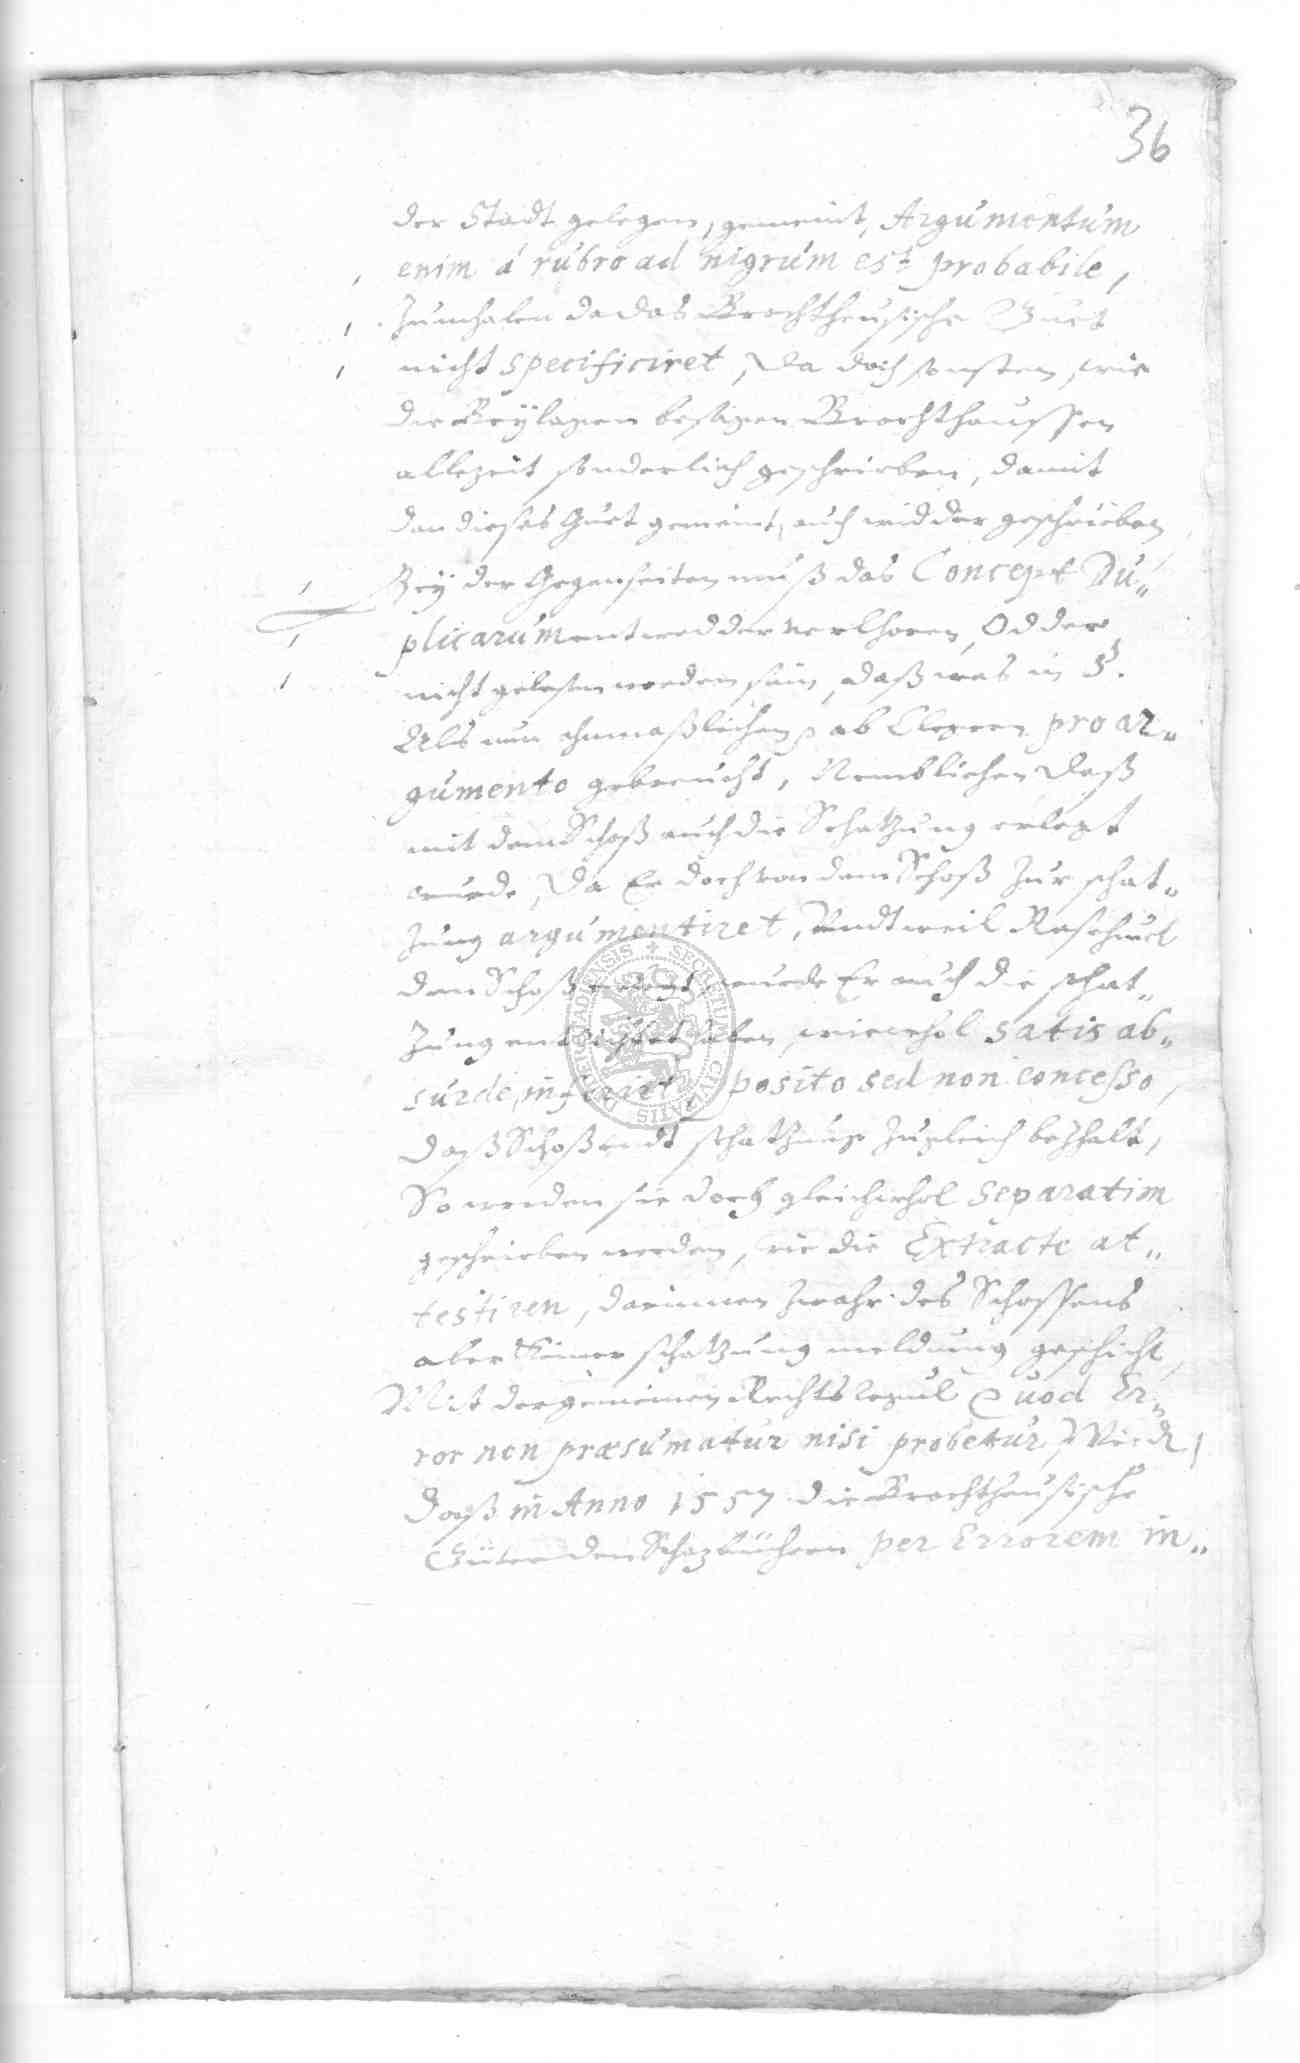 36
der Stadt gelegen, gemeint, Argumentum
enim á rubro ad nigrum est probabile,
Zumhalen da das Brochtheusische Guet
nicht specificiret, Da doch sonsten, wie
die Beÿlagen besagen Brochthaussen
allezeit sonderlich geschrieben, damit
dan dieses Guet gemeint, auch widder geschrieben
Beÿ der Gegenseiten muß das Concept Du„
plicarum entwedder verlhoren, Odder
nicht gelesen worden sein, daß was in §.
Als nun ahnmaßlichen ab Clegern pro ar„
gumento gebraucht, Nemblichen Daß
mit dem Schoß auch die Schatzung erlegt
wurde, Da Er doch von dem Schoß Zur schat„
Zung argumentiret, Undt weil
den Schoß erlegt wurde Er auch die schat„
Zung entrichtet haben, wiewohl satis ab„
surde, inferirt, posito sed non concesso,
Daß Schoß undt schatzung Zugleich bezhalt,
So werden sie doch gleichwhol separatim
geschrieben werden, wie die Extracte at„
testiren, darinnen Zwahr des Schossens
aber keiner schatzung meldung geschicht,
Mit der gemeinen Rechts regul Quod Er„
ror non præsumatur nisi probetur, Wird
Daß in Anno 1557 die Brochtheusische
Güter den Schozbüchern per Errorem in„
SECRETUM CIVITATIS DUDERSTADIENSIS